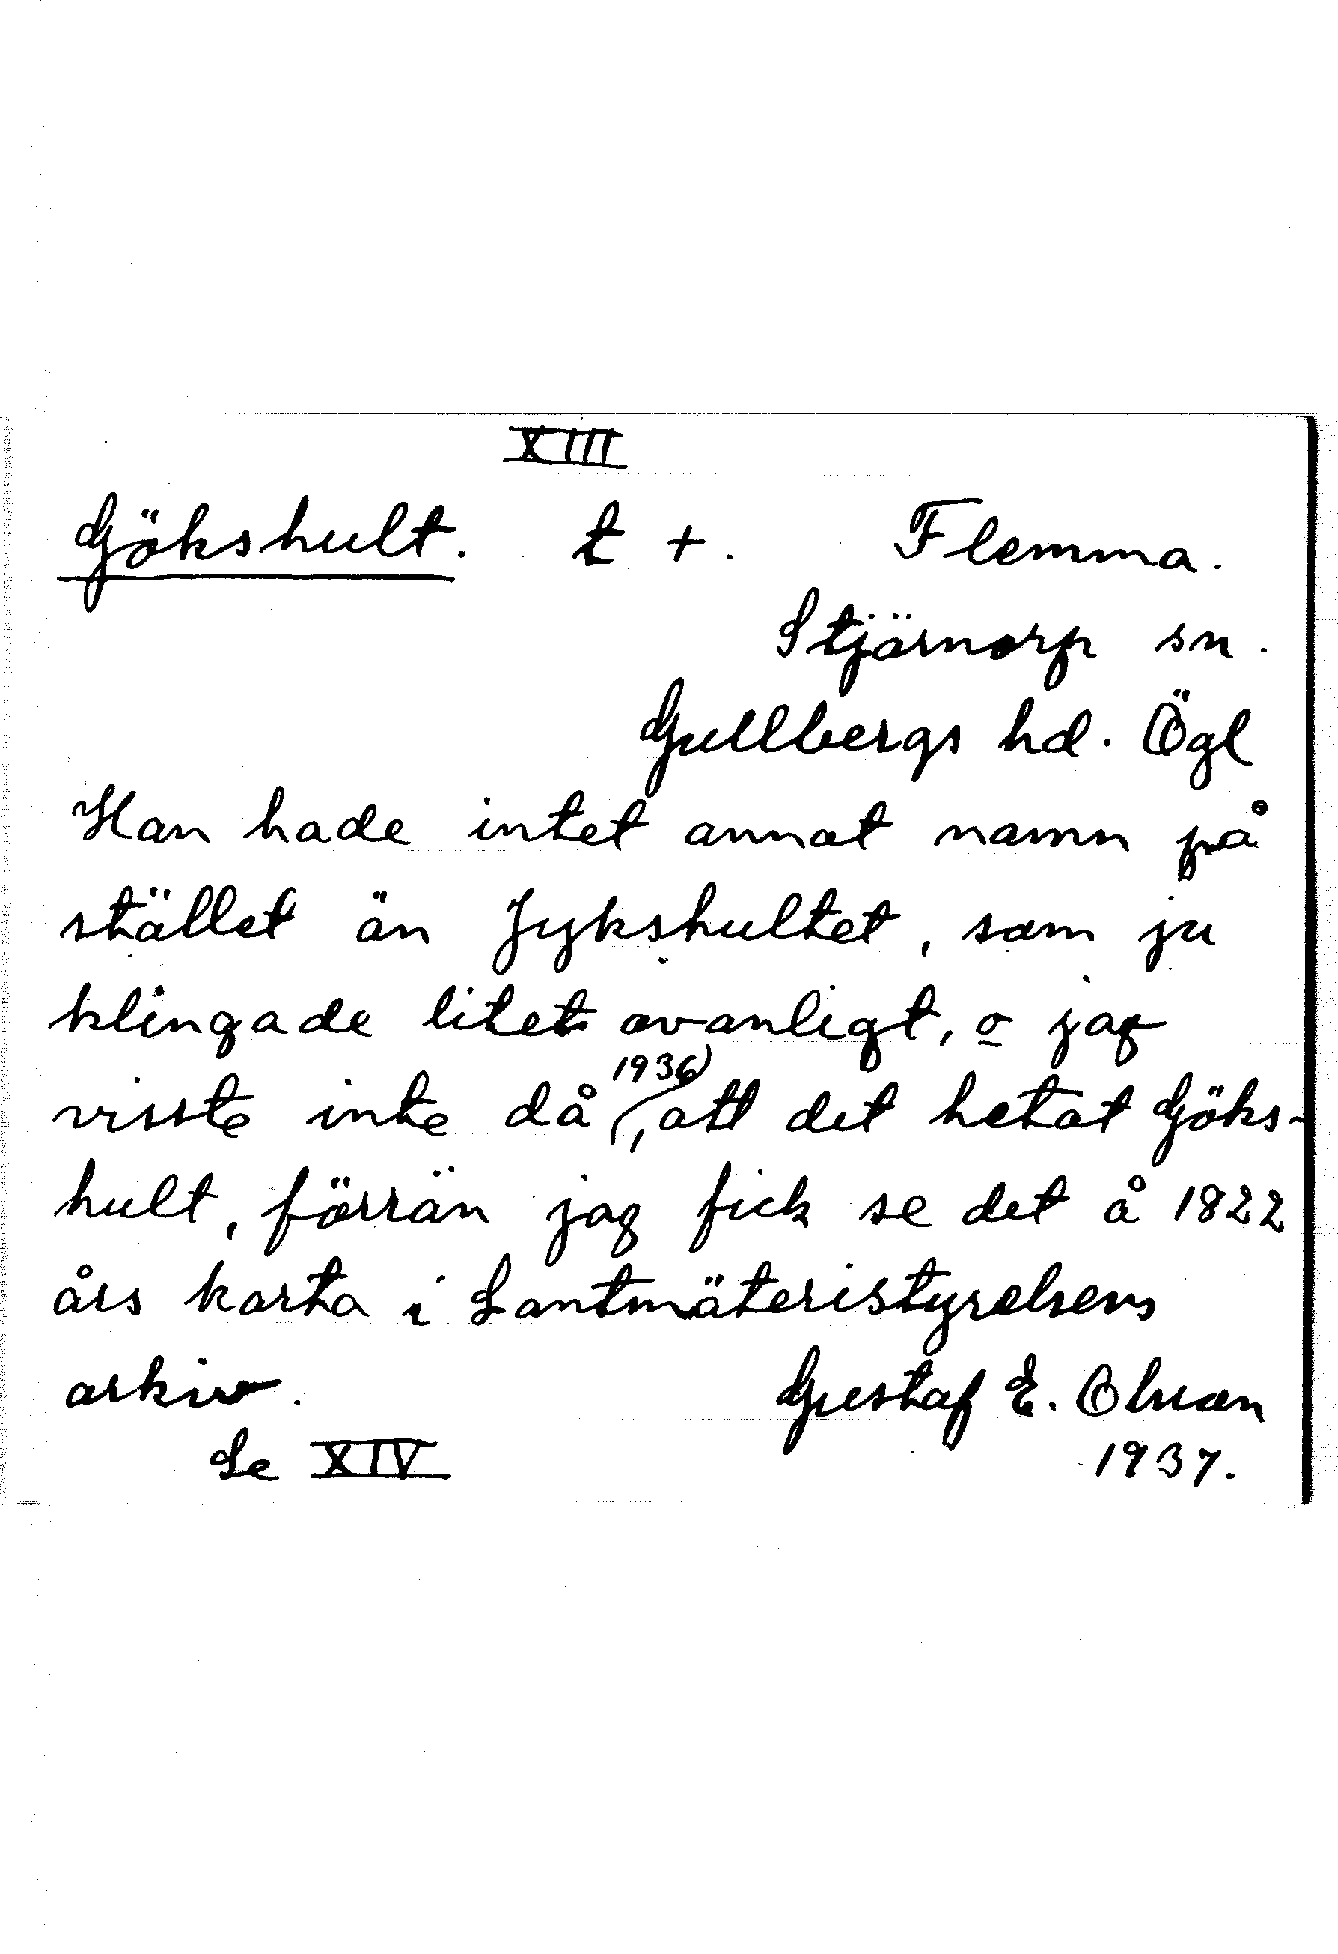 XIII
Gökshult. t +. Flemma.
Stjärnorp sn.
Gullbergs hd. Ögl
Han hade intet annat namn på
stället än Jykshultet, som ju
klingade litet ovanligt, o jag
visste inte då (1936), att det hetat Göks-
hult, förrän jag fick se det å 1822
års karta i Lantmäteristyrelsens
arkiv. Gustaf E. Olsson
Se XIV 1937.